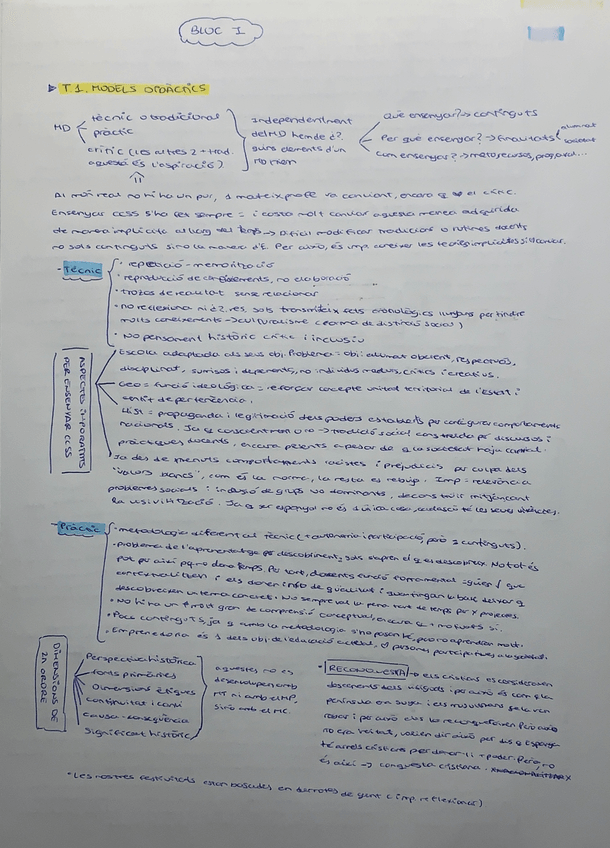 BLOC 1
T.1. MODELS DIDÀCTICS
MD
tècnic o tradicional
pràctic
crític (les altres 2 + trad.
aquesta és l'aspiració)
Independentment
del MD hem de
guirs elements d'un
mateix
Què ensenyar? → continguts
Per què ensenyar? → finalitats
alumnat
societat
com ensenyar? → mètode, recursos, proposta...
Al món real no hi ha un pur, 1 mateix profe va canviant, encara q el crític.
Ensenyar CCSS s'ha fet sempre = i costa molt canviar aquesta manera adquirida
de manera implícita al llarg del temps → Difícil modificar tradicions o rutines docents
no sols continguts sino la manera d'E. Per això, és imp. conèixer les teories implícites si canviar.
- Tècnic
· repetició - memorització
· reproducció de coneixements, no elaboració
· trozos de realitat sense relacionar
· no reflexiona ni res, sols transmeteix fets cronològics llunyans per tindre
molts coneixements → culturalisme (forma de distinció social)
· No pensament històric crític i inclusiu
ASPECTES IMPORTANTS
PER ENSENYAR CCSS
Escola adaptada als seus obj. Problema = obj: alumnat obedient, respectuós,
disciplinat, sumisos i dependents, no individus madurs, crítics i creatius.
Geo = funció ideològica = reforçar concepte unitat territorial de l'Estat i
sentit de pertenència.
Hist = propaganda i legitimació dels poders establerts per configurar comportaments
nacionals. Ja q conscientment o no → tradició social construïda per discursos i
pràctiques docents, encara presents a pesar de q la societat haja canviat.
Ja des de menuts comportaments racistes i prejudicis per culpa dels
"valors blancs", com és la norma, la resta es rebuja. Imp = rellevància
problemes socials i inclusió de grups no dominants, deconstruir mitjançant
la visibilització. Ja q ser espanyol no és 1 única cosa, cadascú té les seues vivències.
- Pràctic
· metodologia diferent al Tècnic (+ autonomia i participació, però = continguts).
· problema de l'aprenentatge per descobriment, sols s'aprén el q es descobreix. No tot és
per així pq no dona temps. Per tant, docents funció fonamental = guien q
contextualitzen i els donen info de qualitat i
descobreixen un tema concret. No sempre val la pena tant de temps per x projectes.
· No hi ha un molt gran de comprensió conceptual, encara q + motius sí.
· Pocs continguts, ja q amb la metodologia sino posen bé, poc no aprendran molt.
· Emprenedoria és 1 dels obj. de l'educació actual, persones participatives a la societat.
DIMENSIONS DE
2n ORDRE
Perspectiva històrica
fonts primàries
Dimensions ètiques
Continuïtat i canvi
Causa-conseqüència
Significat històric
aquestes no es
desenvolupen amb
MT ni amb el MP,
sinó amb el MC.
· RECONQUESTA → els cristians es consideren
descendents dels visigots i per això és com q la
península era seua i els musulmans se la van
robar i per això ells la reconquereixen. Però això
no era veritat, volien dir això per dir q Espanya
té arrels cristianes per donar-li + poder. Però, no
és així → conquesta cristiana.
· Les nostres festivitats estan basades en derrotes de gent (imp. reflexionar)